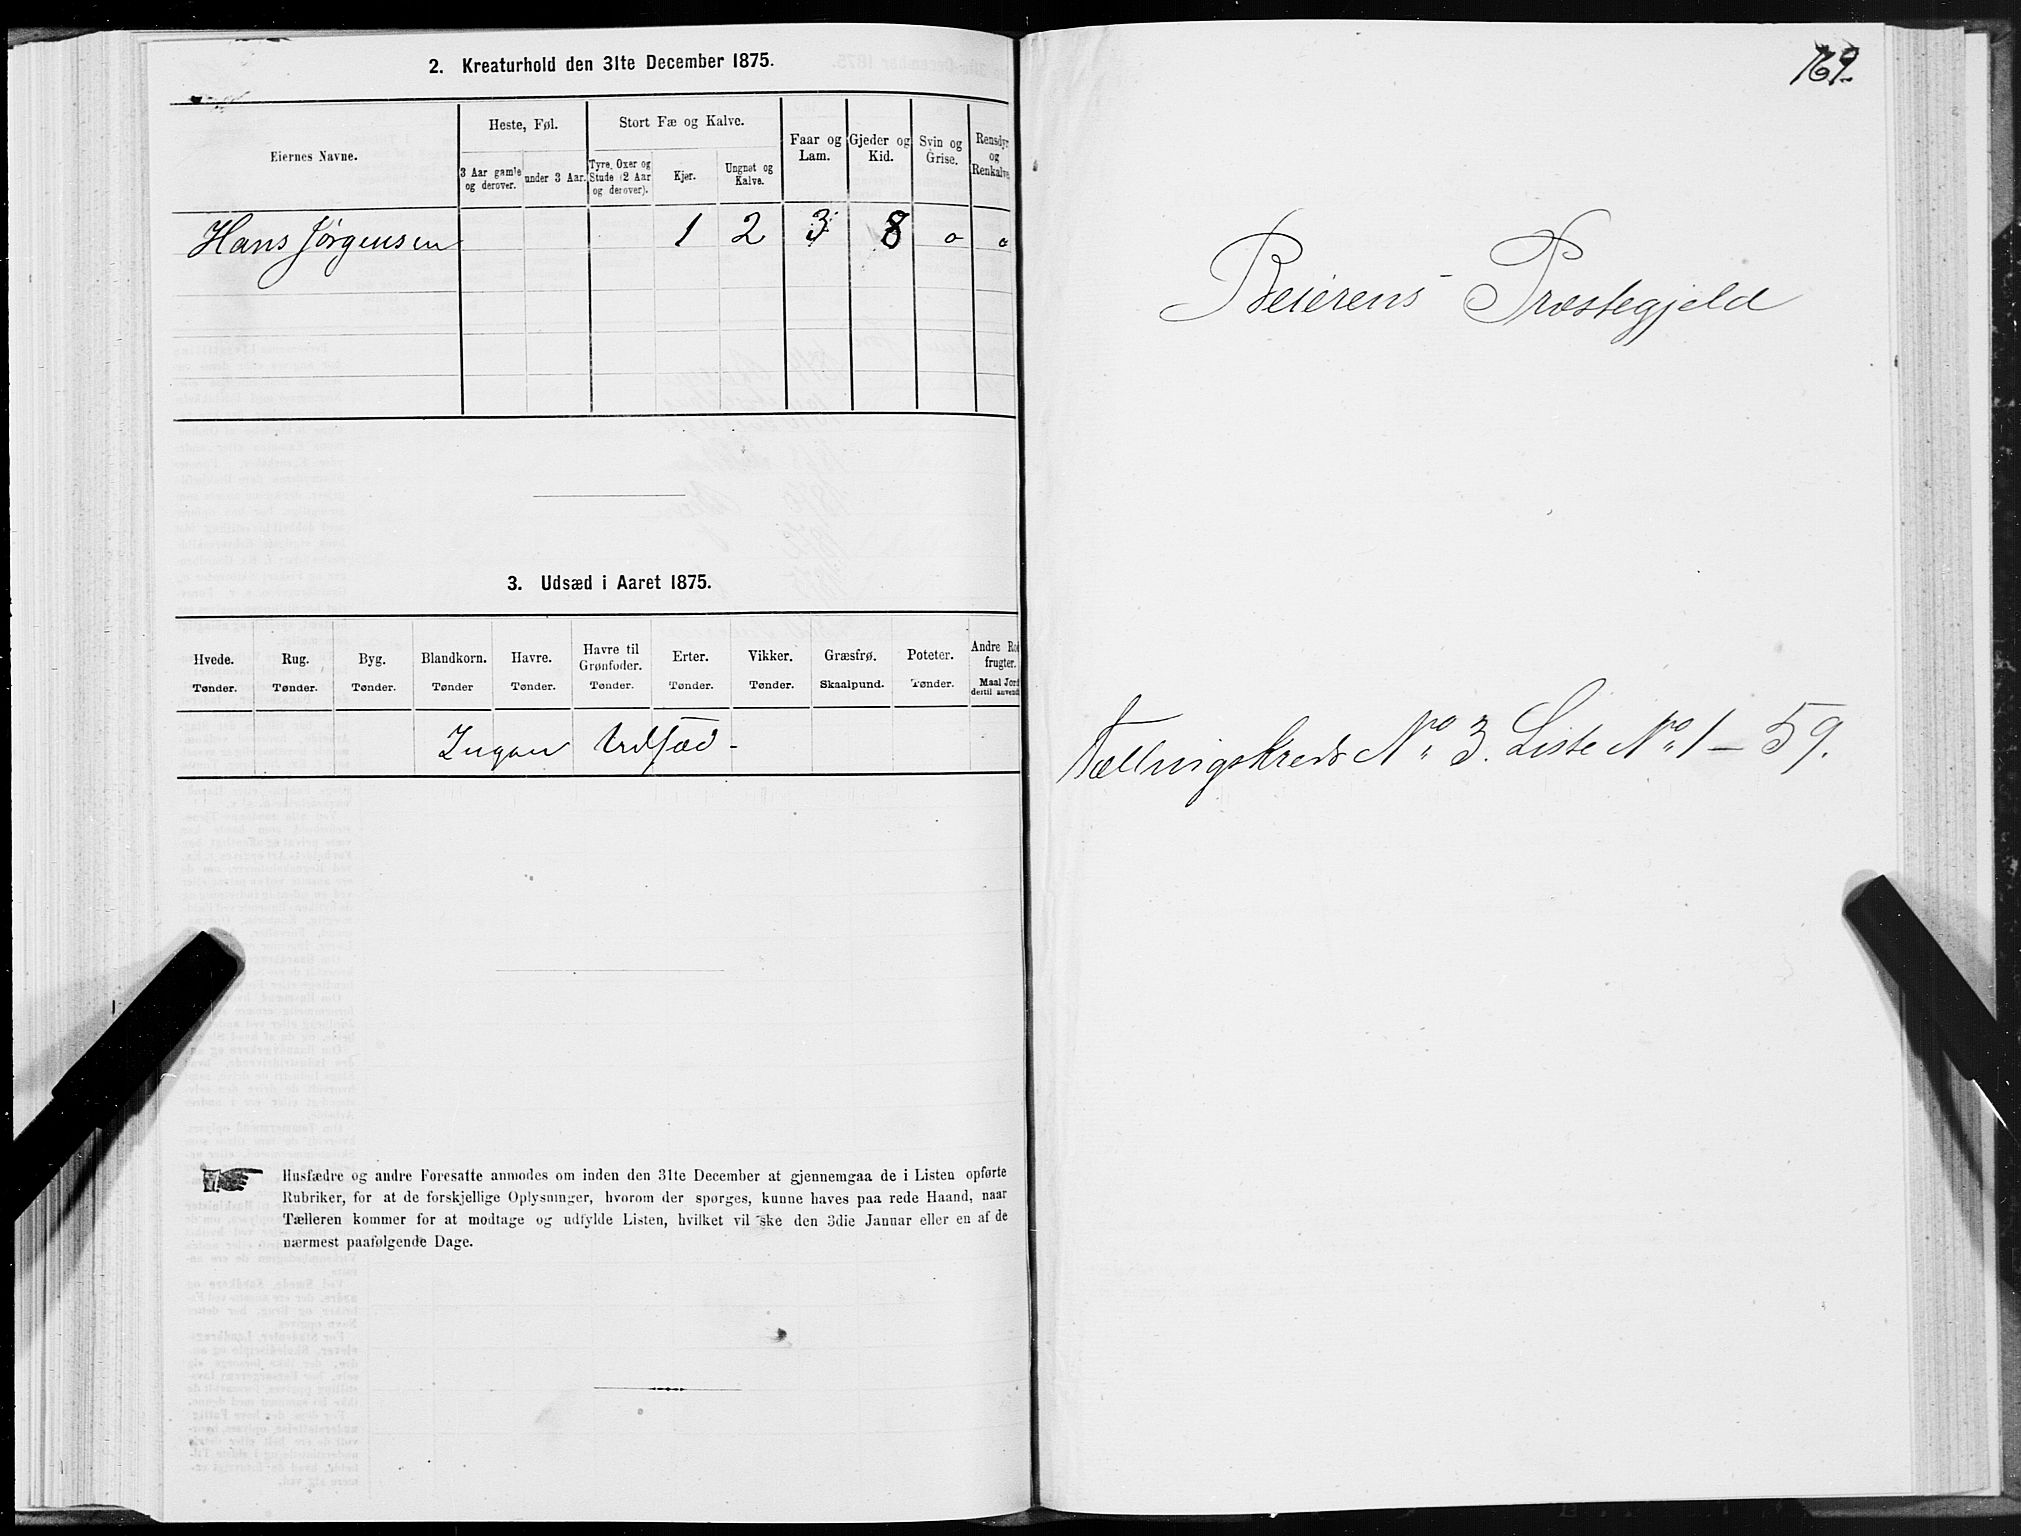 2. Kreaturhold den 31te December 1875.
Eiernes Navne.
Heste, Føl.
Stort Fæ og Kalve.
Faar og Lam.
Gjeder og Kid.
Svin og Grise.
Rensdyr og Renkalve.
3 Aar gamle og derover.
under 3 Aar.
Tyre, Oxer og Stude (2 Aar og derover).
Kjer.
Ungnøt og Kalve.
Hans Jørgensen 1 2 3 8 o o
3. Udsæd i Aaret 1875.
Hvede. Rug. Byg. Blandkorn. Havre. Havre til Grønfoder. Erter. Vikker. Græsfrø. Poteter. Andre Ro frugter.
Tønder. Tønder. Tønder. Tønder Tønder. Tønder. Tønder. Tønder. Skaalpund. Tønder. Maal Jord dertil anvend
Ingen Udsæd -
Husfædre og andre Foresatte anmodes om inden den 31te December at gjennemgaa de i Listen opførte
Rubriker, for at de forskjellige Oplysninger, hvorom der spørges, kunne haves paa rede Haand, naar
Tælleren kommer for at modtage og udfylde Listen, hvilket vil ske den 3die Januar eller en af de
nærmest paafølgende Dage.
169.
Beierens Præstegjeld
Tællingskreds No 3. Liste No 1 – 59.